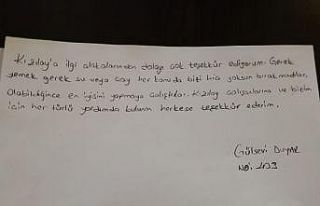 Kızılay'a ilgi alakalarından dolayı çok teşekkür ediyorum. Gerek
yemek gerek su veya çay her konuda bizi hiç yoksun bırakmadılar.
Olabildiğince en iyisini yapmaya çalıştılar. Kızılay çalışanlarına ve bizim
için her türlü yardımda bulunan herkese teşekkür ederim.
Gülsevi
No: 403